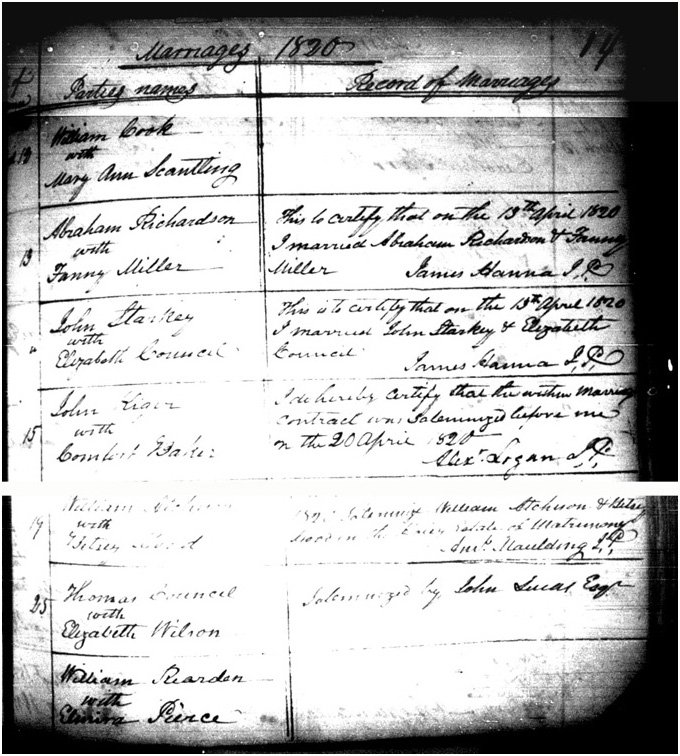 Marriages 1820
14
Parties names
Record of Marriages
William Cook
with
Mary Ann Scantling
13
Abraham Richardson
with
Fanny Miller
This to certify that on the 13th April 1820
I married Abraham Richardson & Fanny
Miller James Hanna J.P.
John Starkey
with
Elizabeth Council
This is to certify that on the 13th April 1820
I married John Starkey & Elizabeth
Council
James Hanna J.P.
15
John Kiger
with
Comfort Baker
I do hereby certify that the within marriage
contract was solemnized before me
on the 20 April 1820
Alexr Logan J.P.
19
William
with
Betsey
Solemnize William Atcheson & Betsey
in the Holy State of Matrimony
Maulding J.P.
25
Thomas Council
with
Elizabeth Wilson
Solemnized by John Lucas Esqr
William Rearden
with
Elmira Pierce